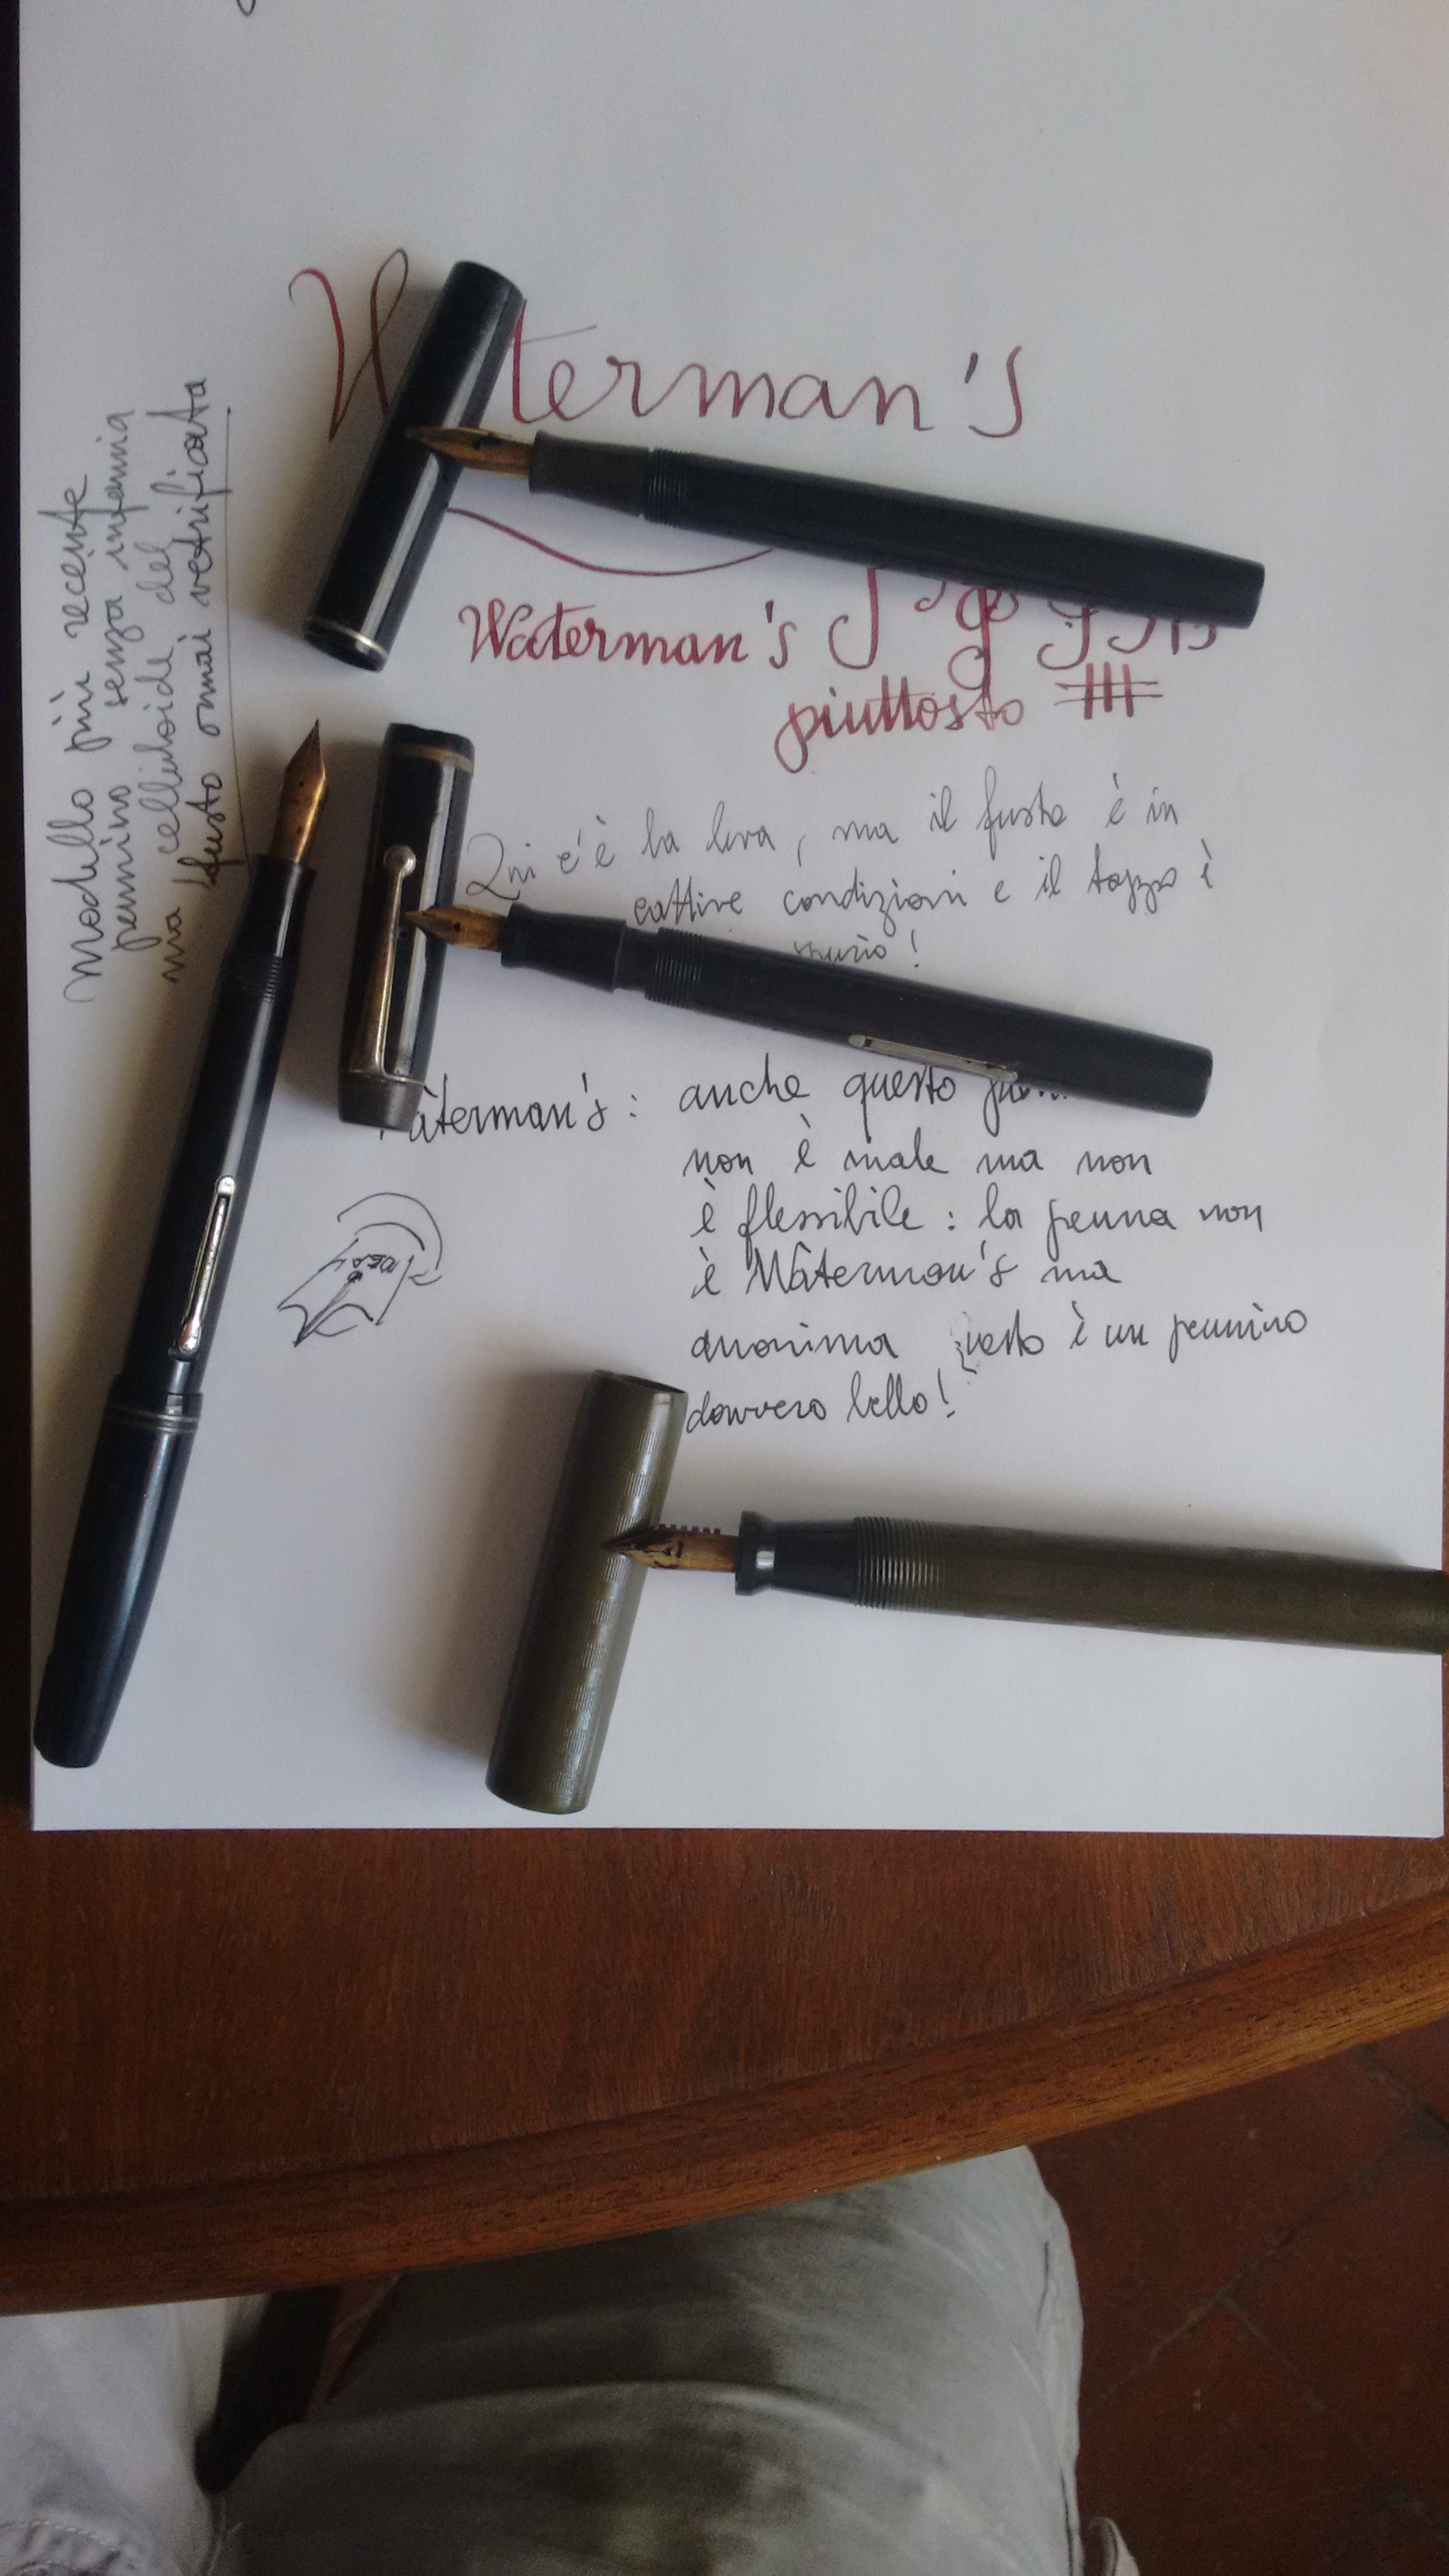 Waterman's
Waterman's
piuttosto
Qui c'è la leva, ma il fusto è in
cattive condizioni e il tappo è
spurio!
Waterman's: anche questo
non è male ma non
è flessibile: la penna non
è Waterman's ma
anonima questo è un pennino
davvero bello!
IDEAL
modello più recente
pennino senza infamia
ma celluloide del
fusto ormai vetrificata